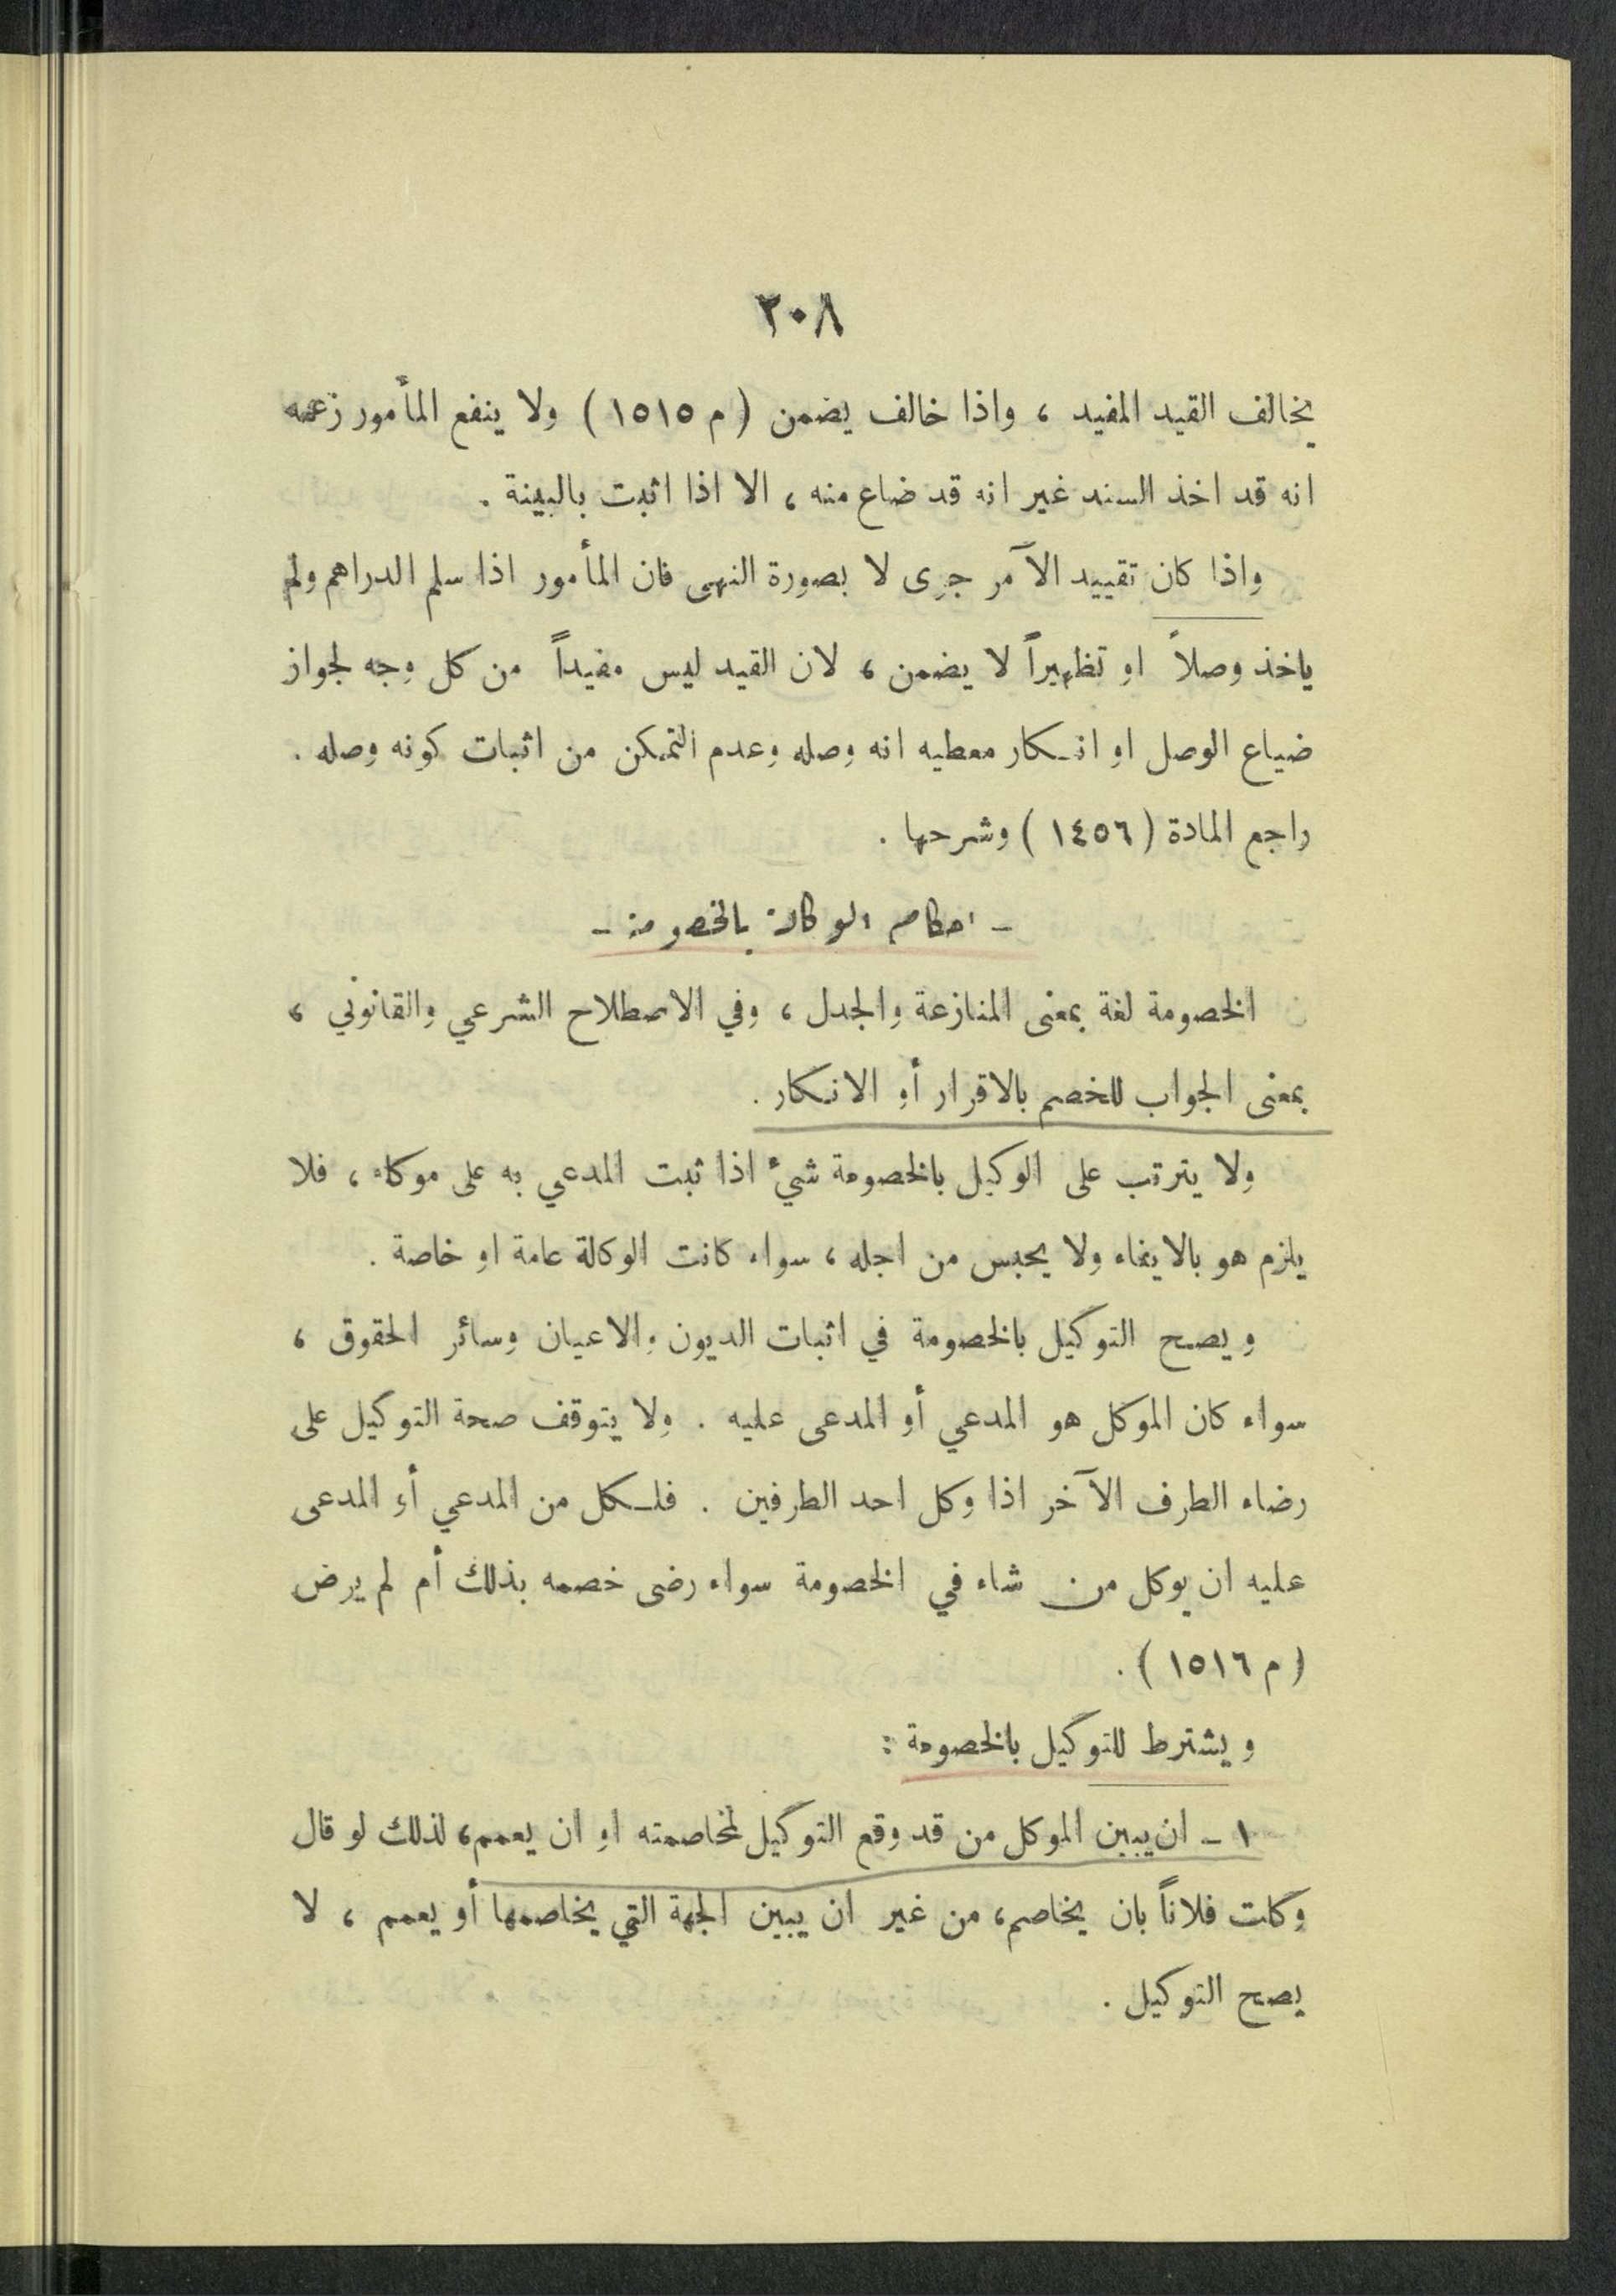 ٢٠٨
يخالف القيد المفيد ، واذا خالف يضمن ( م ١٥١٥ ) ولا ينفع المأمور زعمه
انه قد اخذ السند غير انه قد ضاع منه ، الا اذا اثبت بالبينة .
واذا كان تقييد الآمر جرى لا بصورة النهي فان المأمور اذا سلم الدراهم ولم
ياخذ وصلاً او تظهيراً لا يضمن ، لان القيد ليس مفيداً من كل وجه لجواز
ضياع الوصل او انكار معطيه انه وصله وعدم التمكن من اثبات كونه وصله .
راجع المادة ( ١٤٥٦ ) وشرحها .
- احكام الوكالة بالخصومة -
الخصومة لغة بمعنى المنازعة والجدل ، وفي الاصطلاح الشرعي والقانوني ،
بمعنى الجواب للخصم بالاقرار أو الانكار .
ولا يترتب على الوكيل بالخصومة شيء اذا ثبت المدعي به على موكله ، فلا
يلزم هو بالايفاء ولا يحبس من اجله ، سواء كانت الوكالة عامة او خاصة .
ويصح التوكيل بالخصومة في اثبات الديون والاعيان وسائر الحقوق ،
سواء كان الموكل هو المدعي أو المدعى عليه . ولا يتوقف صحة التوكيل على
رضاء الطرف الآخر اذا وكل احد الطرفين . فلكل من المدعي أو المدعى
عليه ان يوكل من شاء في الخصومة سواء رضى خصمه بذلك أم لم يرض
( م ١٥١٦ ) .
ويشترط للتوكيل بالخصومة :
١ - ان يبين الموكل من قد وقع التوكيل لمخاصمته او ان يعمم، لذلك لو قال
وكلت فلاناً بان يخاصم، من غير ان يبين الجهة التي يخاصمها أو يعمم ، لا
يصح التوكيل .